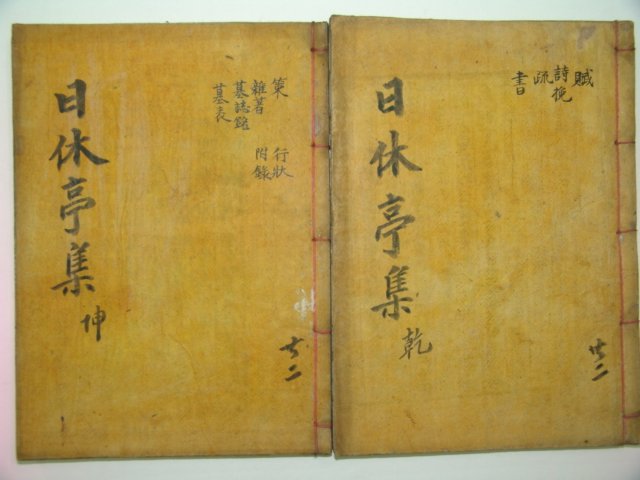 日休亭集
乾
賦
詩挽
疏
書
共二
日休亭集
坤
策 行狀
雜著 附錄
墓誌銘
墓表
共二